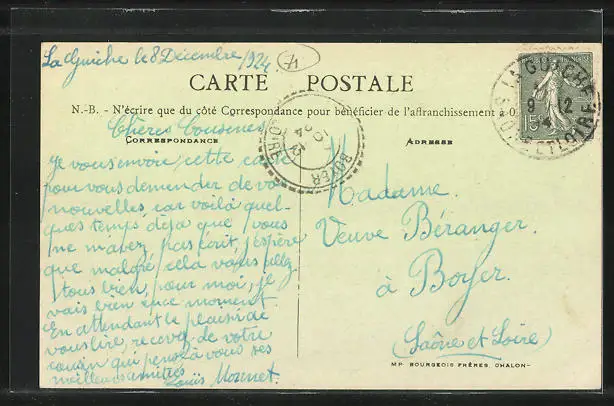 La Guiche le 8 Décembre 1924
CARTE POSTALE
N.-B. - N'écrire que du côté Correspondance pour bénéficier de l'affranchissement à 0
Chères Cousines
CORRESPONDANCE
ADRESSE
Je vous envoie cette carte
pour vous demander de vos
nouvelles car voilà quel-
ques temps déjà que vous
ne m'avez pas écrit, j'espère
que malgré cella vous allez
tous bien, pour moi, je
vais bien en ce moment.
En attendant le plaisir de
vous lire, recevez de votre
cousin qui pense à vous ses
meilleurs amitiés
Louis Monnet.
Madame
Veuve Béranger.
à Boyer.
(Saône et Loire)
MP BOURGEOIS FRÈRES, CHALON-
LA GUICHE
9 12
ET LOIRE
15c
BOYER
LOIRE
10 12
24